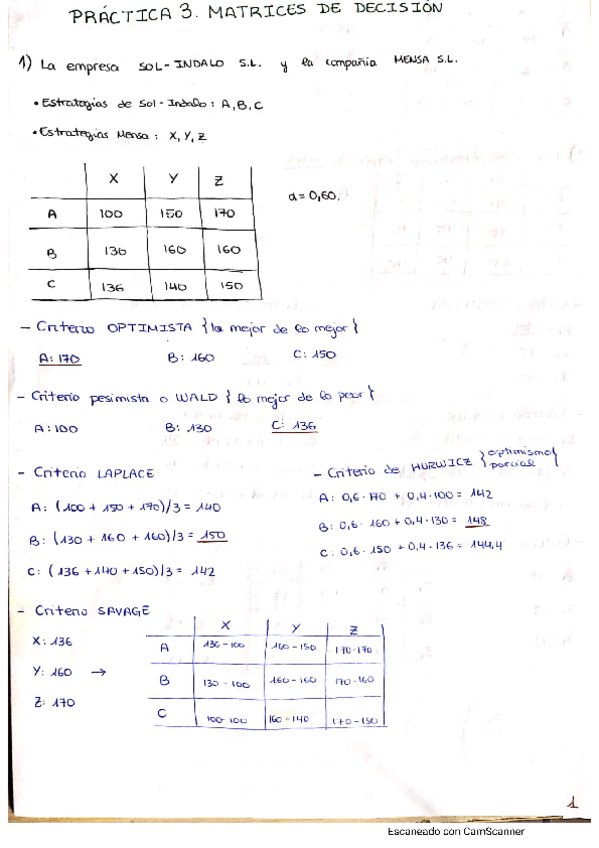 PRÁCTICA 3. MATRICES DE DECISIÓN
1) La empresa SOL-INDALO S.L. y la compañia MENSA S.L.
• Estrategias de Sol-Indalo: A, B, C
• Estrategias Mensa: X, Y, Z
X Y Z
A 100 150 170
B 130 160 160
C 136 140 150
α = 0,60.
- Criterio OPTIMISTA {la mejor de lo mejor}
A: 170 B: 160 C: 150
- Criterio pesimista o WALD {lo mejor de lo peor}
A: 100 B: 130 C: 136
- Criterio LAPLACE
A: (100 + 150 + 170)/3 = 140
B: (130 + 160 + 160)/3 = 150
C: (136 + 140 + 150)/3 = 142
- Criterio de HURWICZ {optimismo parcial}
A: 0,6·170 + 0,4·100 = 142
B: 0,6·160 + 0,4·130 = 148
C: 0,6·150 + 0,4·136 = 144,4
- Criterio SAVAGE
X: 136
Y: 160 →
Z: 170
X Y Z
A 136-100 160-150 170-170
B 130-100 160-160 170-160
C 100-100 160-140 170-150
1
Escaneado con CamScanner